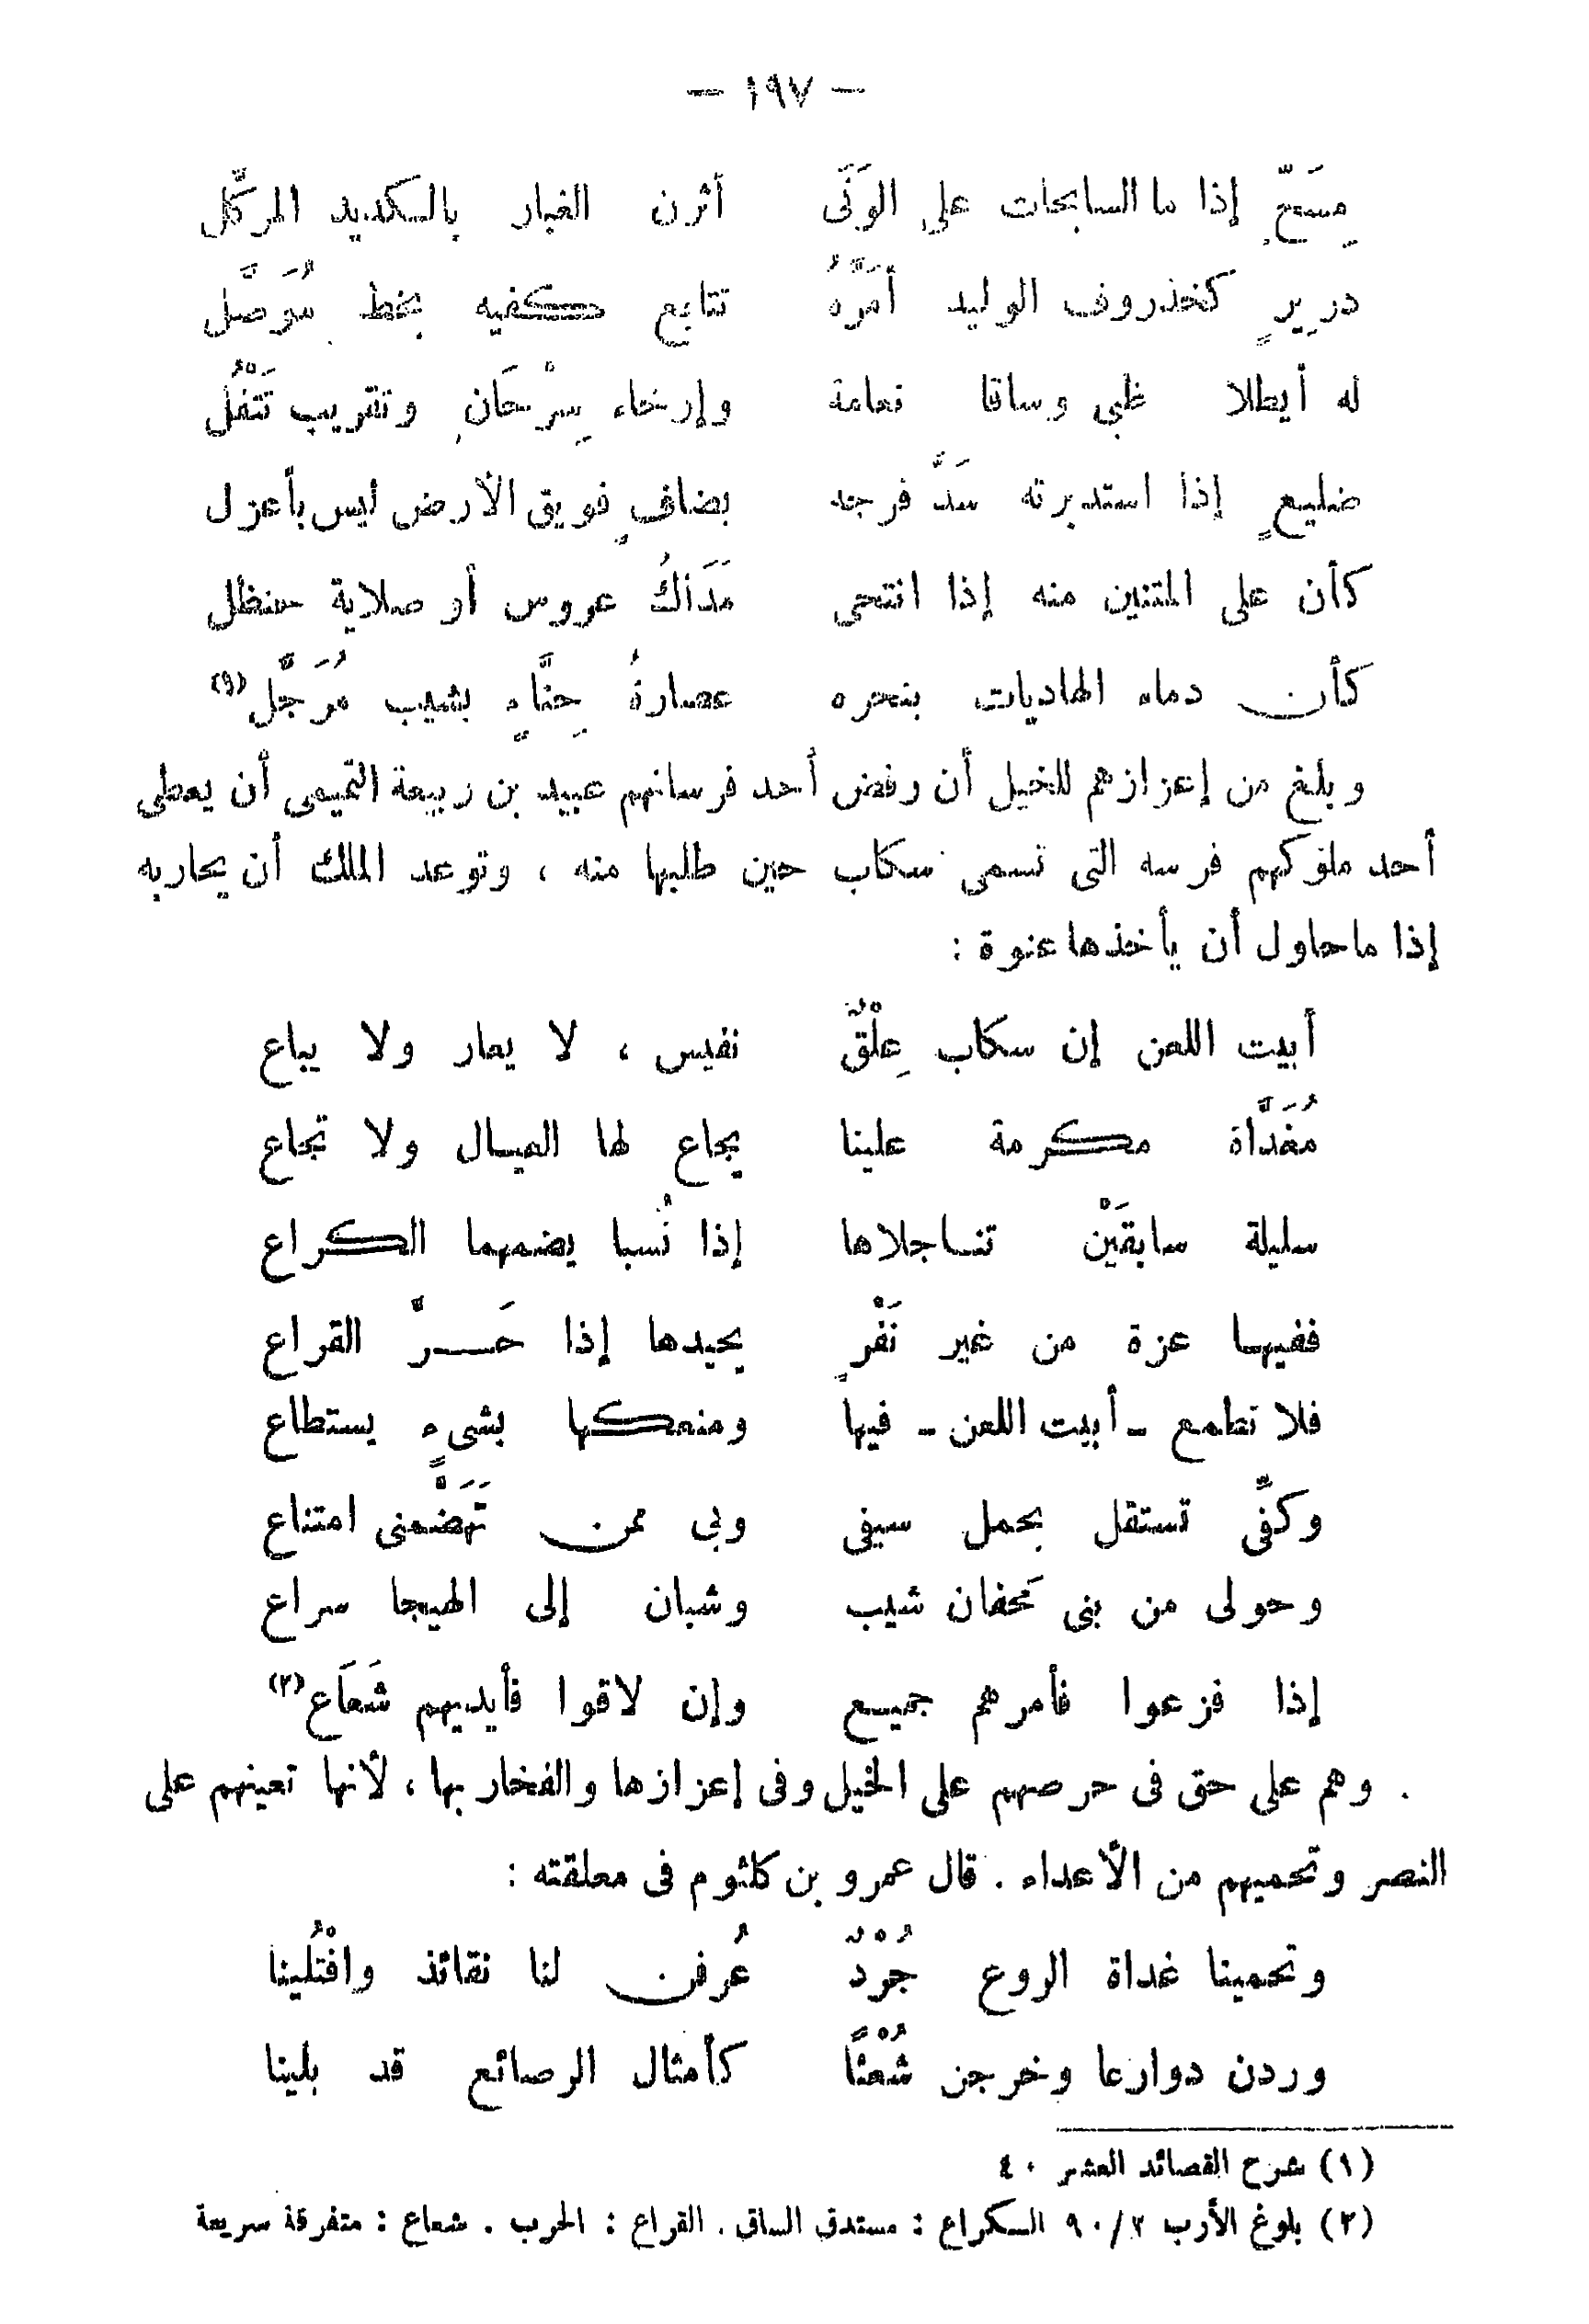 — ١٩٧ —
مِسَحٍّ إذا ما السابحات على الوَنَى أثرن الغبار بالكديد المركَّل
دريرٍ كخذروف الوليد أمَرَّهُ تتابع كفيه بخط مُوَصَّل
له أيطلا ظبى وساقا نعامة وإرخاء سِرْحَانٍ وتقريب تَتْفُل
ضليعٍ إذا استدبرته سَدَّ فرجه بضافٍ فويق الأرض ليس بأعزل
كأن على المتنين منه إذا انتحى مَدَاكُ عروس أو صلاية حنظل
كأن دماء الهاديات بنحره عصارةُ حِنَّاءٍ بشيب مُرَجَّل (١)
وبلغ من إعزازهم للخيل أن رفض أحد فرسانهم عبيد بن ربيعة التميمى أن يعطى
أحد ملوكهم فرسه التى تسمى سكاب حين طلبها منه ، وتوعد الملك أن يحاربه
إذا ما حاول أن يأخذها عنوة :
أبيت اللعن إن سكاب عِلْقٌ نفيس ، لا يعار ولا يباع
مُفَدَّاة مكرمة علينا يجاع لها العيال ولا تجاع
سليلة سابقَيْن تناجلاها إذا نُسبا يضمهما الكراع
ففيها عزة من غير نَفْرٍ يحيدها إذا حَرَّ القراع
فلا تطمع - أبيت اللعن - فيها ومنعكها بشىءٍ يستطاع
وكفِّى تستقل بحمل سيفى وبى ممن تَهَضَّمنى امتناع
وحولى من بنى قحفان شيب وشبان إلى الهيجا سراع
إذا فزعوا فأمرهم جميع وإن لاقوا فأيديهم شَعَاع (٢)
. وهم على حق فى حرصهم على الخيل وفى إعزازها والفخار بها ، لأنها تعينهم على
النصر وتحميهم من الأعداء . قال عمرو بن كلثوم فى معلقته :
وتحمينا غداة الروع جُرْدٌ عُرفن لنا نقائذ وافْتُلينا
وردن دوارعا وخرجن شُعْثًا كأمثال الرصائع قد بلينا
(١) شرح القصائد العشر ٤٠
(٢) بلوغ الأرب ٢/٩٠ الكراع : مستدق الساق . القراع : الحرب . شعاع : متفرقة سريعة